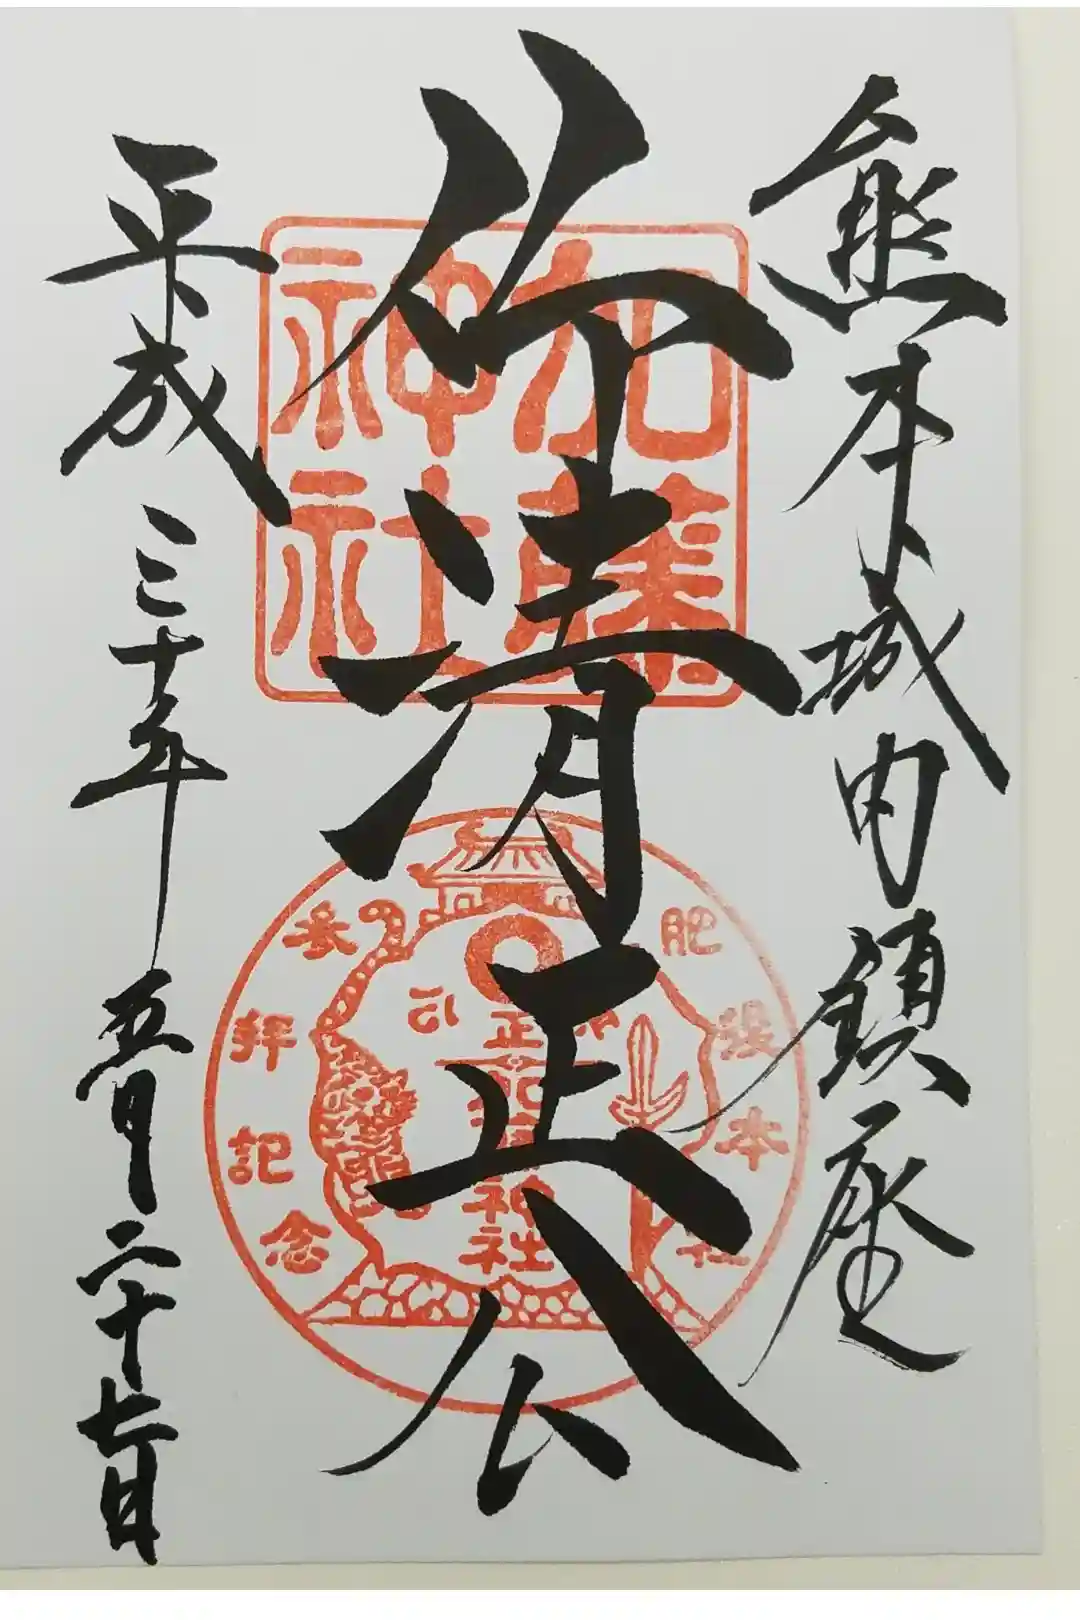 熊本城内鎮座
仰清正公
平成三十年五月二十七日
加藤
神社
肥後本社
参拝記念
神社